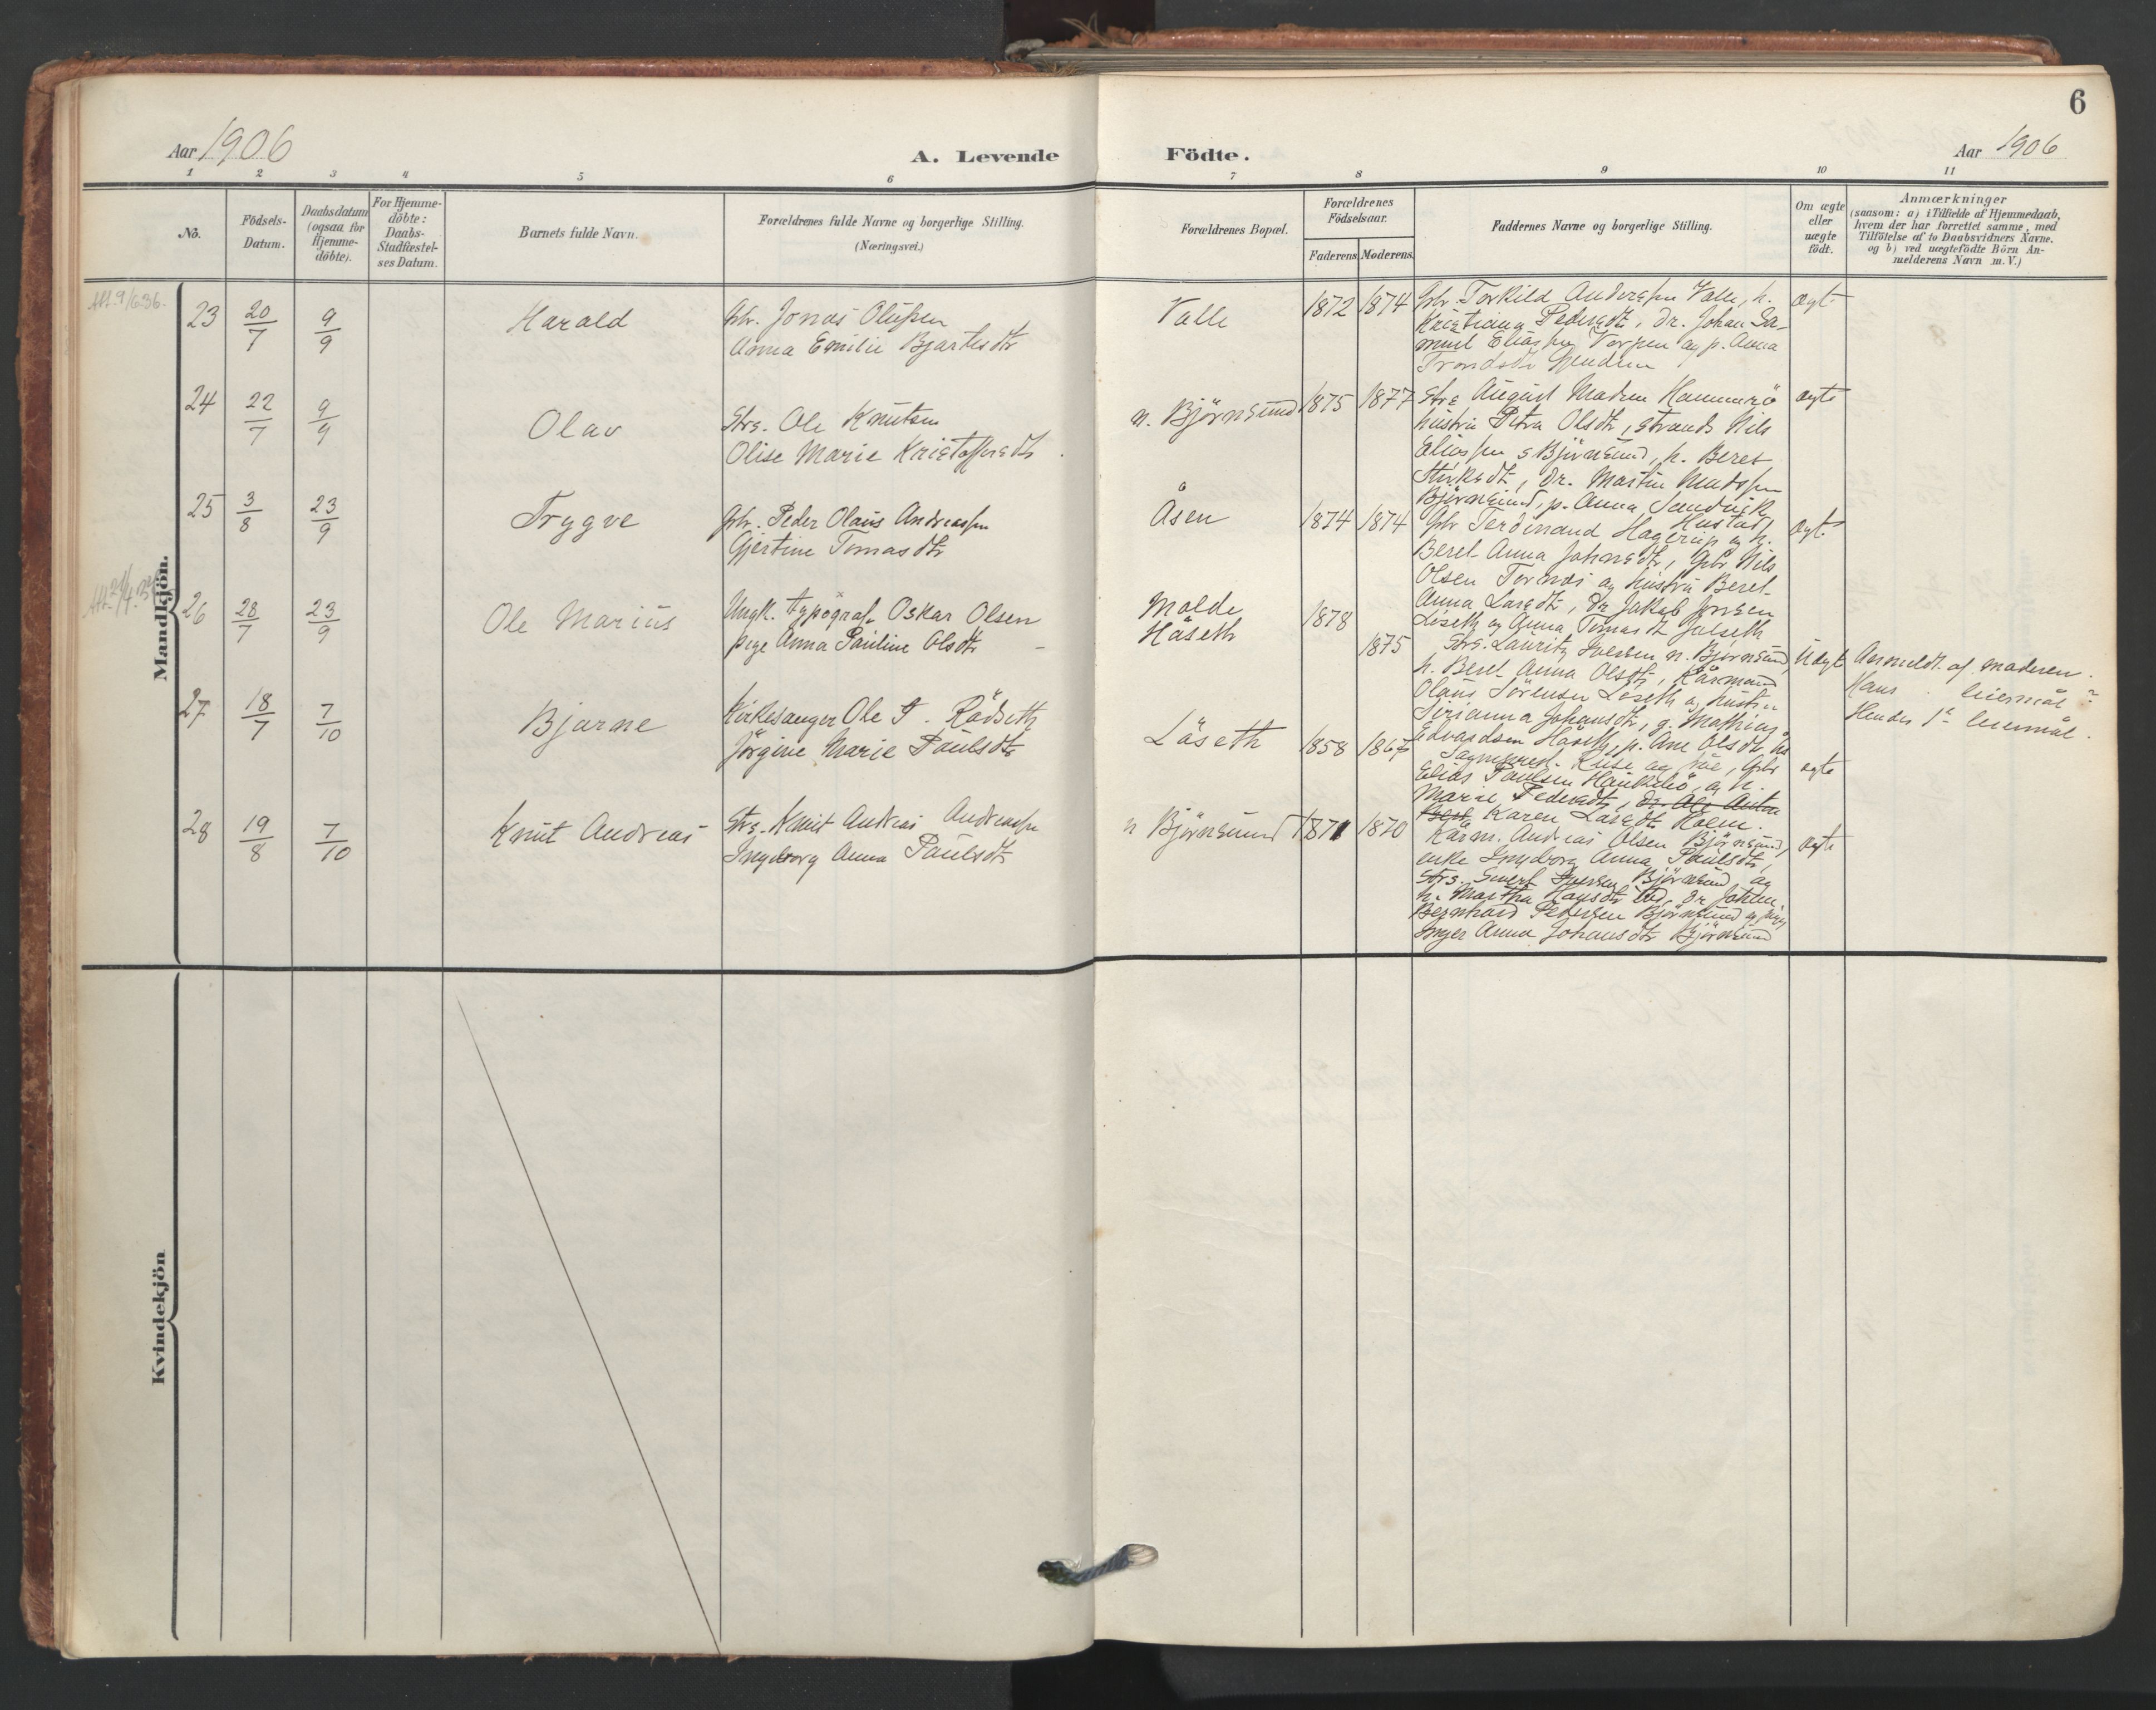 6
Aar 1906
A. Levende Födte.
Aar 1906
1 2 3 4 5 6 7 8 9 10 11
No.
Födsels-
Datum.
Daabsdatum
(ogsaa for
Hjemme-
döbte).
For Hjemme-
döbte:
Daabs-
Stadfæstel-
ses Datum.
Barnets fulde Navn.
Forældrenes fulde Navne og borgerlige Stilling.
(Næringsvei.)
Forældrenes Bopæl.
Forældrenes
Födselsaar.
Faderens Moderens
Faddernes Navne og borgerlige Stilling.
Om ægte
eller
uægte
födt.
Anmærkninger
(saasom: a) i Tilfælde af Hjemmedaab,
hvem der har forrettet samme, med
Tilföielse af to Daabsvidners Navne.
og b) ved uægtefödte Börn An-
melderens Navn m. V.)
Mandkjön.
Att. 9/6 36.
23 20/7 9/9 Harald
Gbr. Jonas Olufsen
Anna Emilie Bjartesdtr
Valle 1872 1874
Gbr. Torkild Anderssen Valle, h.
Kristiana Pedersdtr, Dr. Johan Sa-
muel Eliassen Verpen og p. Anna
Trondsdtr
ægt.
24 22/7 9/9 Olav
Strs. Ole Knutsen
Olise Marie Kristoffersdtr
n. Björnsund 1875 1877
Strs August Madsen Hammerö
hustru Petra Olsdtr, strands Nils
Eliassen s Björnsund, h. Beret
dtr, Dr. Martin Madssen
Björnsund, p. Anna Sandvik
Hustad
ægte
25 3/8 23/9 Trygve
Gbr. Peder Olaus Andreassen
Gjertine Tomasdtr
Åsen 1874 1874
Gbr Ferdinand Hagerup og h.
Beret Anna Johnsdtr, Gbr Nils
Olsen Tornæs og hustru Beret-
Anna Larsdtr, Dr Jakob Jonsen
Læseth og Anna Tomasdtr Julseth
ægt.
26 28/7 23/9 Ole Marius
Ungk. typograf Oskar Olsen
pige Anna Pauline Olsdtr
Molde
Håseth
1878
1875
Strs. Lauritz Iversen n. Björnsund,
h. Beret Anna Olsdtr, Kårmand
Olaus Sörensen Læseth og hustru
Sirianna Johansdtr, g. Mathias
Edvardsen Håseth, p. Ane Olsdtr, hs
Uægt
Anmeldt af moderen.
Hans . leiermål ?
Hendes 1ste leiermål.
27 18/7 7/10 Bjarne
Kirkesanger Ole T. Rödseth
Jörgine Marie Paulsdtr
Läseth 1858 1867
Sognepræst. Kruse og frue, Gbr
Elias Paulsen Haukebö, og h.
Marie Pedersdtr,
Karen Larsdtr Holm.
ægte
28 19/8 7/10 Knut Andreas
Strs. Knut Andreas Andreassen
Ingeborg Anna Paulsdtr
n Björnsund 1871 1870
Kårm. Andreas Olsen Björnsund,
enke Ingeborg Anna Paulsdtr,
Strs. Sivert Iversen Björnsund og
h. Martha Hansdtr ibd, Dr Johan
Bernhard Pedersen Björnsund og pige
Inger Anna Johansdtr Björnsund
ægte
Kvindekjön